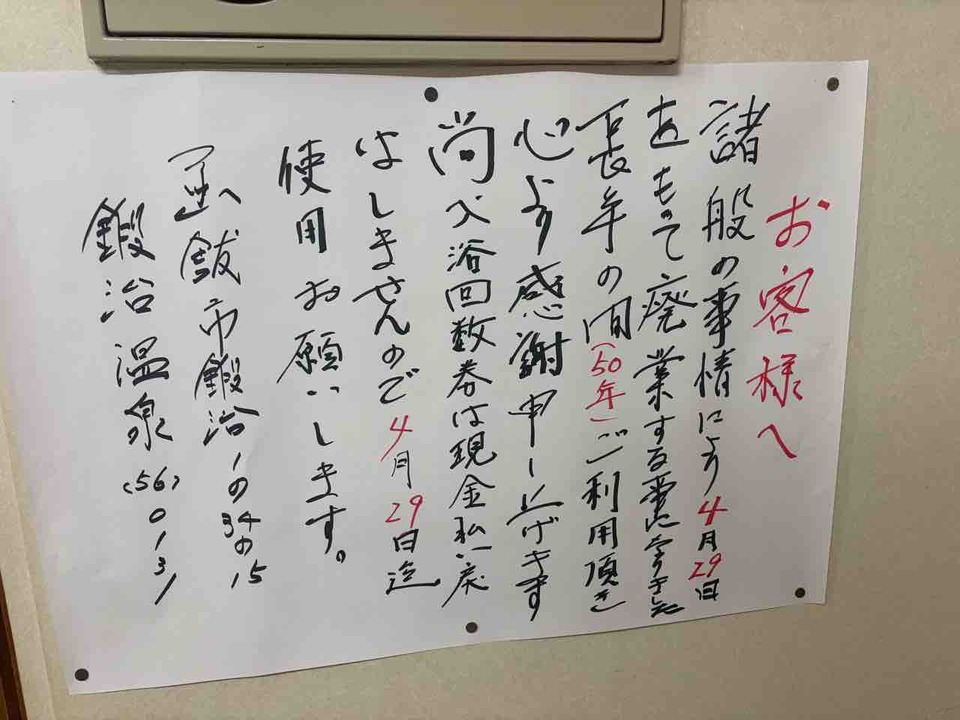 お客様へ
諸般の事情により4月29日
をもって廃業する事になりました
長年の間(50年)ご利用頂き
心より感謝申し上げます
尚入浴回数券は現金払い戻
はしませんので4月29日迄
使用お願いします。
函館市鍛治1の34の15
鍛治温泉(56)0131